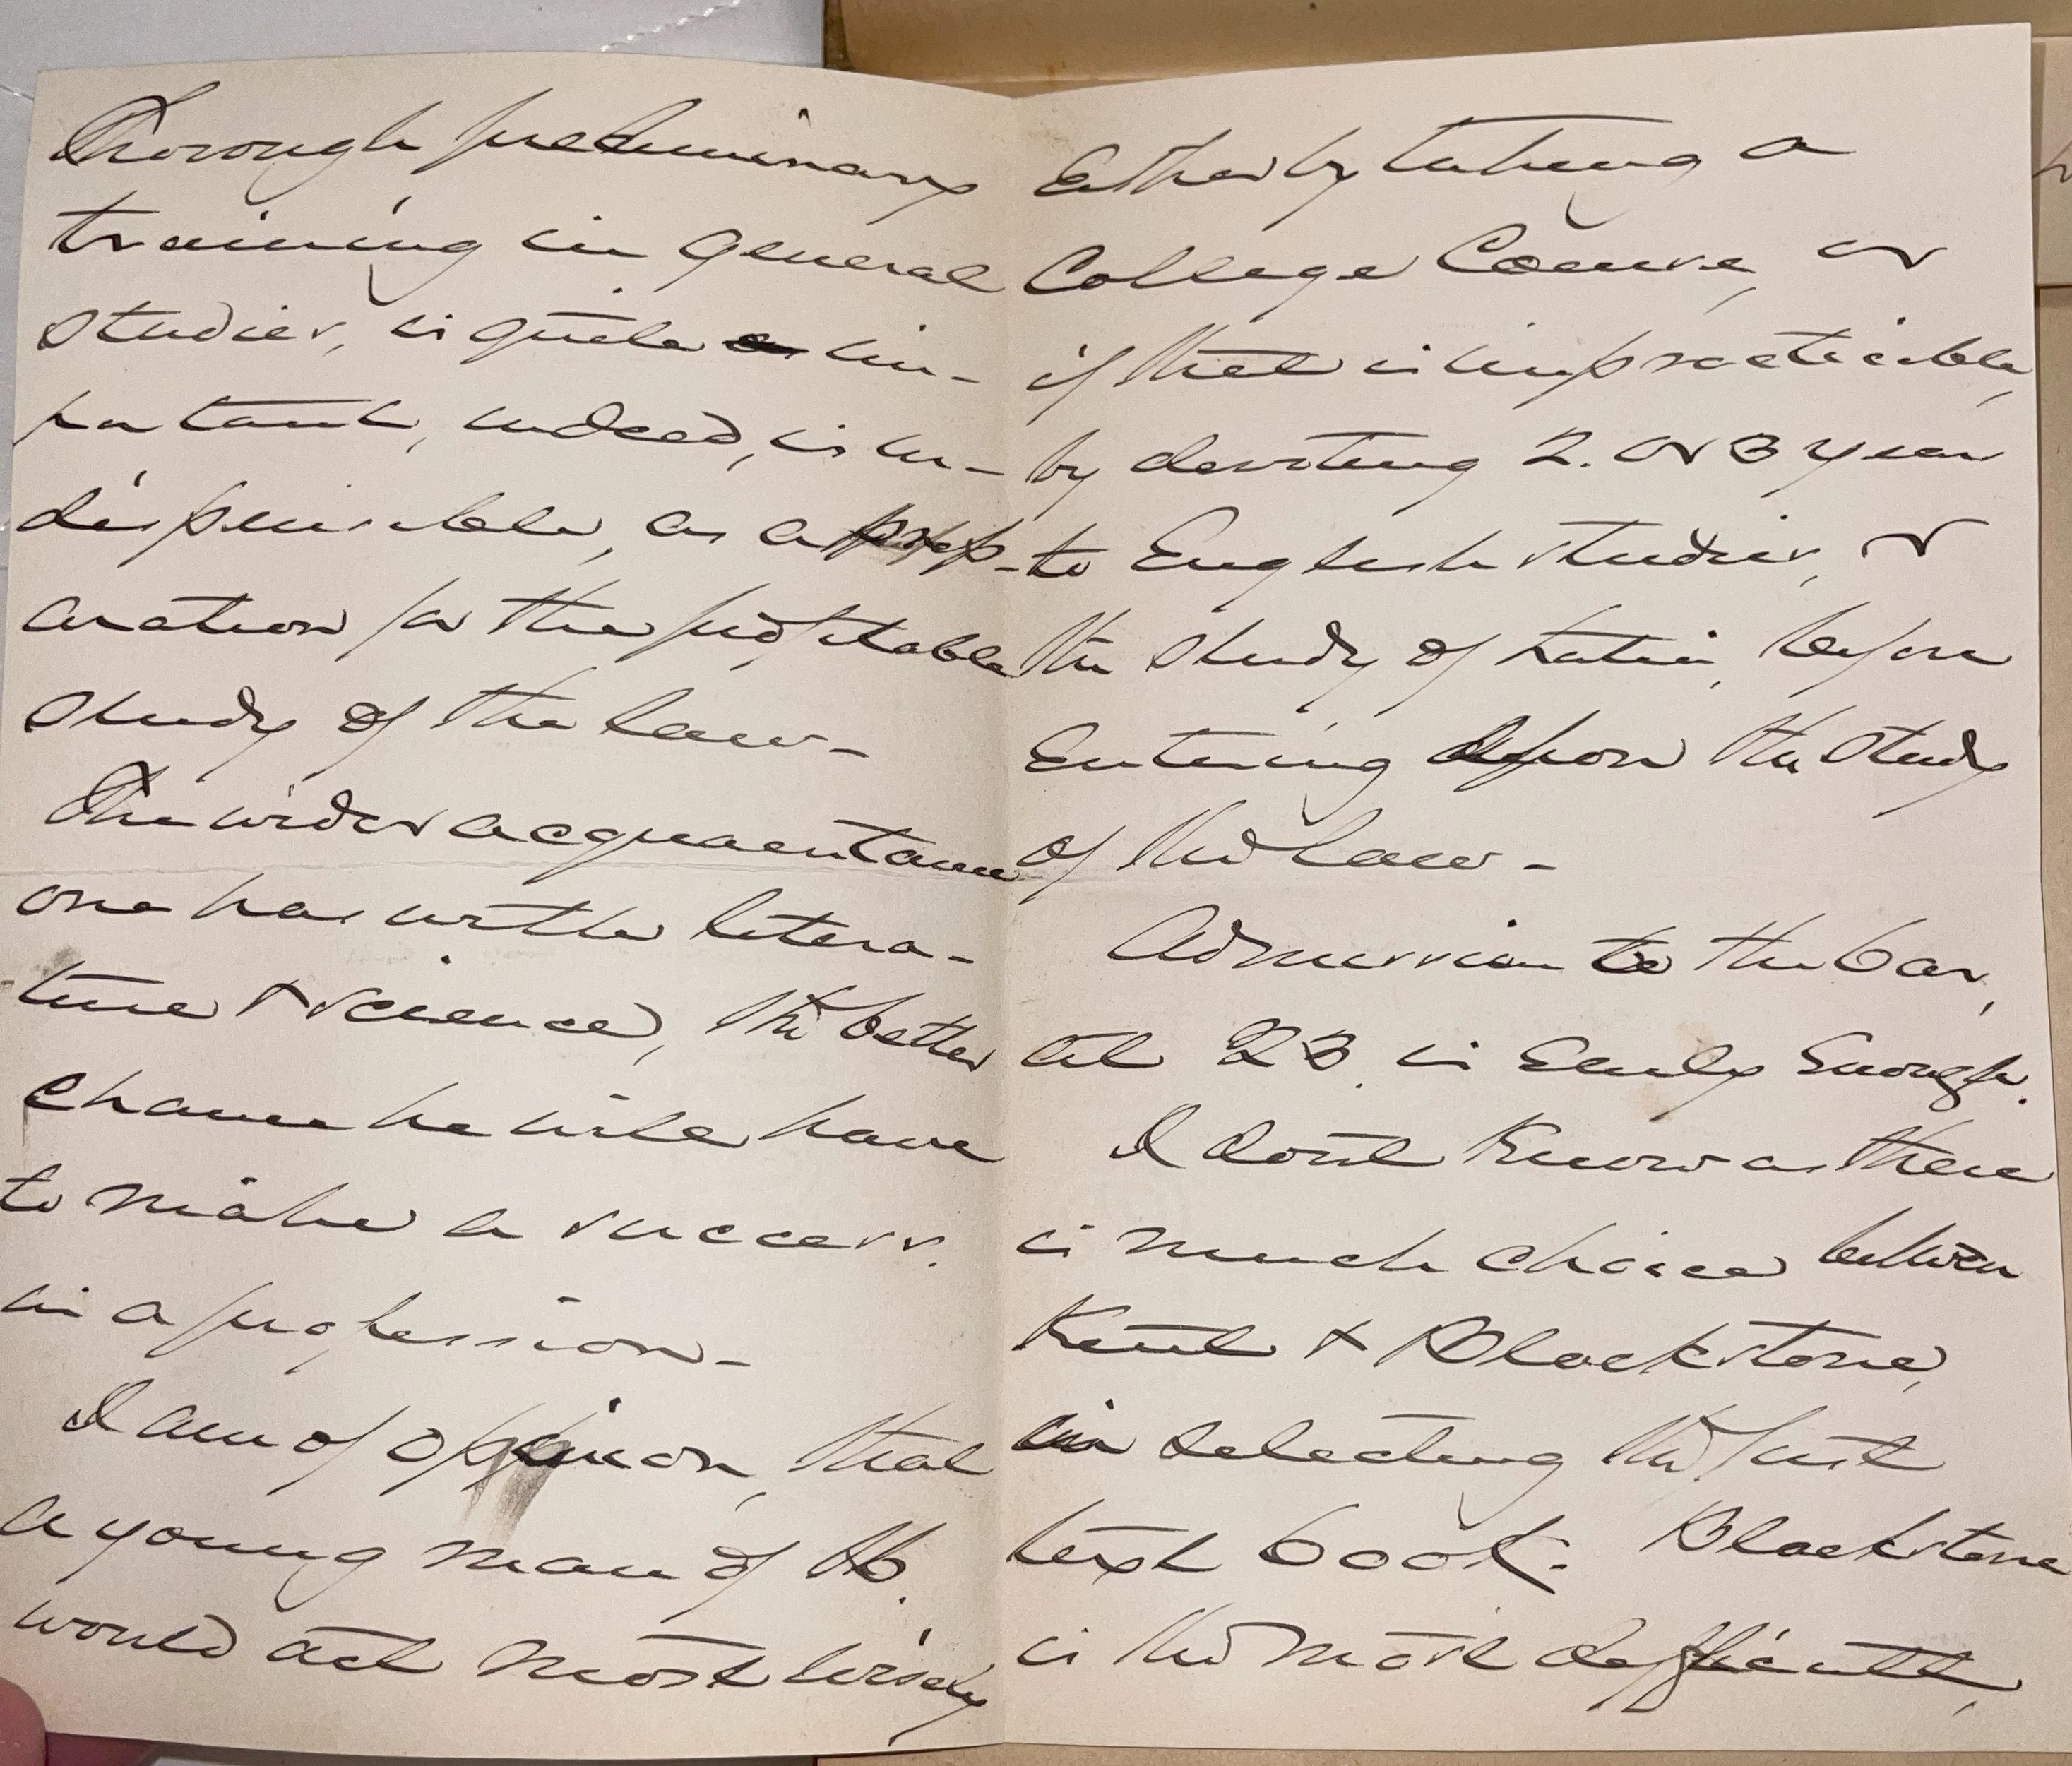 Thorough preliminary
training in general
studies, is quite im-
portant, indeed, is in-
dispensible, as a prep-
aration for the profitable
study of the law-
The wider acquaintance
one has with litera-
ture & science, the better
chance he will have
to make a success.
in a profession-
I am of opinion, that
a young man of 16.
would act most wisely
Either by taking a
College Course, or
if that is impracticable,
by devoting 2. or 3 years
to English studies, &
the study of Latin, before
Entering upon the study
of the law-
Admission to the bar,
at 23. is Early Enough.
I dont Know as there
is much choice between
Kent & Blackstone,
in selecting the first
text book. Blackstone
is the most difficult,